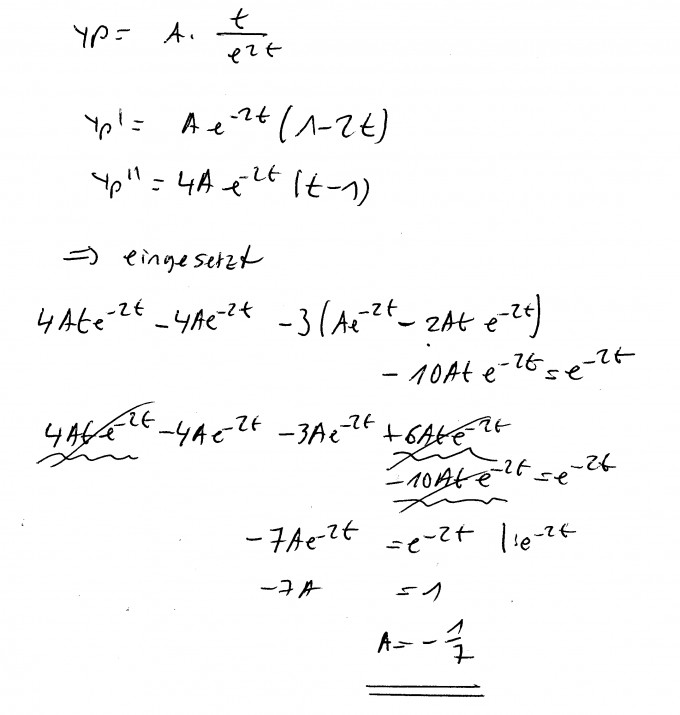 yp = A · t/e^2t
yp' = A e^-2t (1-2t)
yp'' = 4A e^-2t (t-1)
⇒ eingesetzt
4Ate^-2t - 4Ae^-2t - 3(Ae^-2t - 2At e^-2t)
- 10At e^-2t = e^-2t
4Ate^-2t - 4Ae^-2t - 3Ae^-2t + 6Ate^-2t
- 10At e^-2t = e^-2t
-7Ae^-2t = e^-2t |:e^-2t
-7A = 1
A = - 1/7